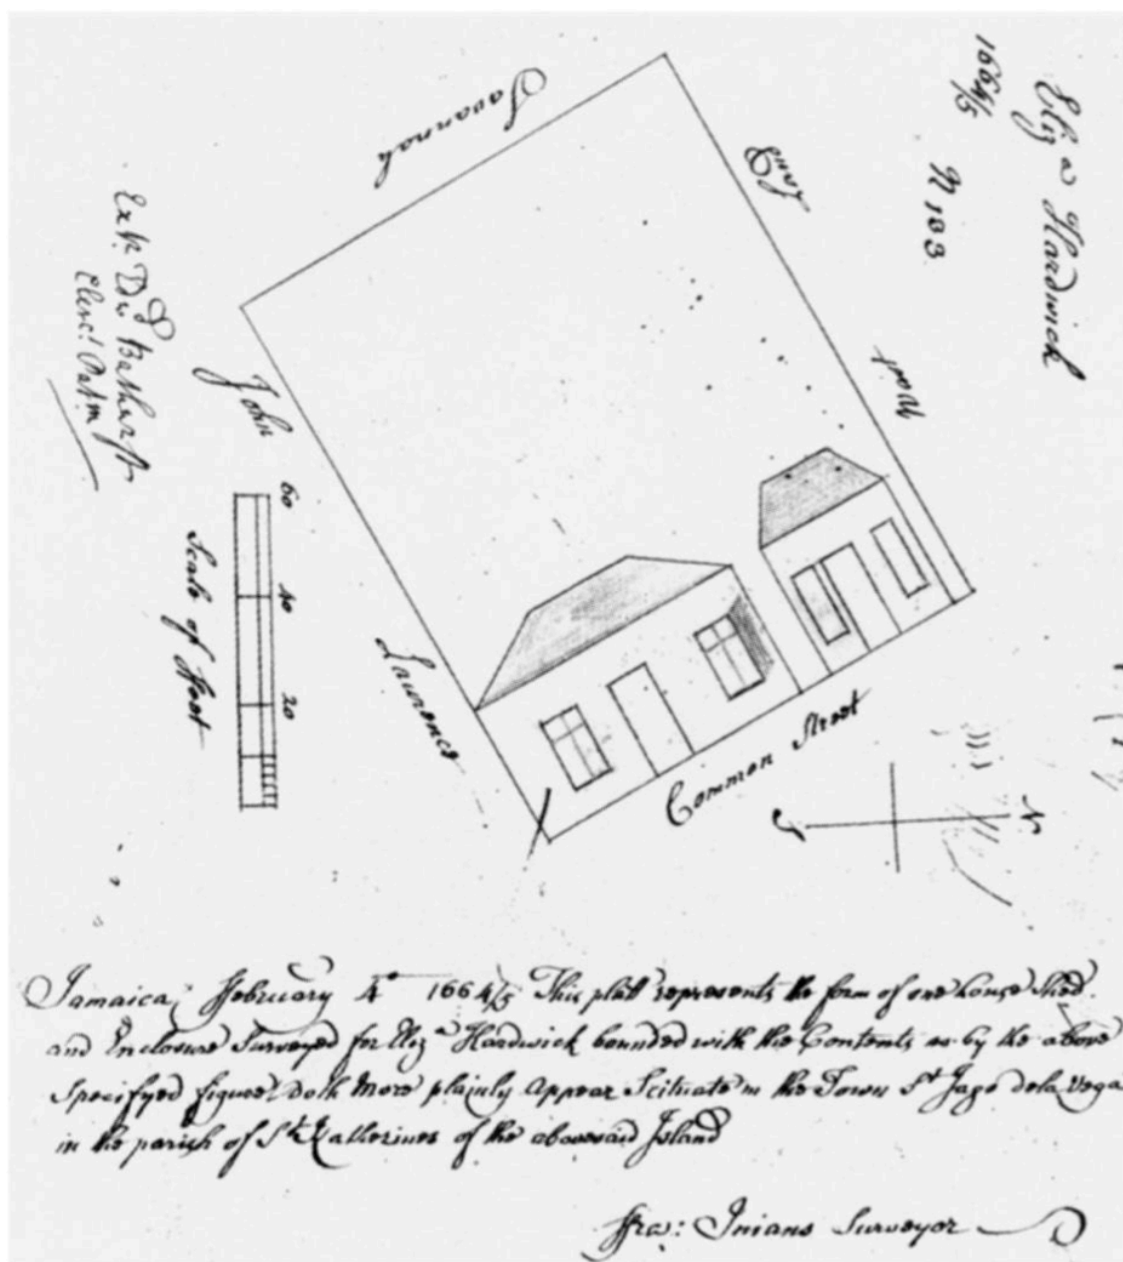 Eliz a Hardwick
1664/5
N 183
Savannah
Exr. Dd Bathurst
John
Lawrence
60
40
20
Scale of ffeet
Common Street
N
S
Jamaica ffebruary 4 1664/5 This platt represents the form of one house Shed
and Enclosure Surveyed for Eliz a Hardwick bounded with the Contents as by the above
Specifyed figure doth More plainly Appear Scituate in the Town St Jago dela Vega
in the parish of St Katherines of the abovesaid Island
ffra: Inians Surveyor